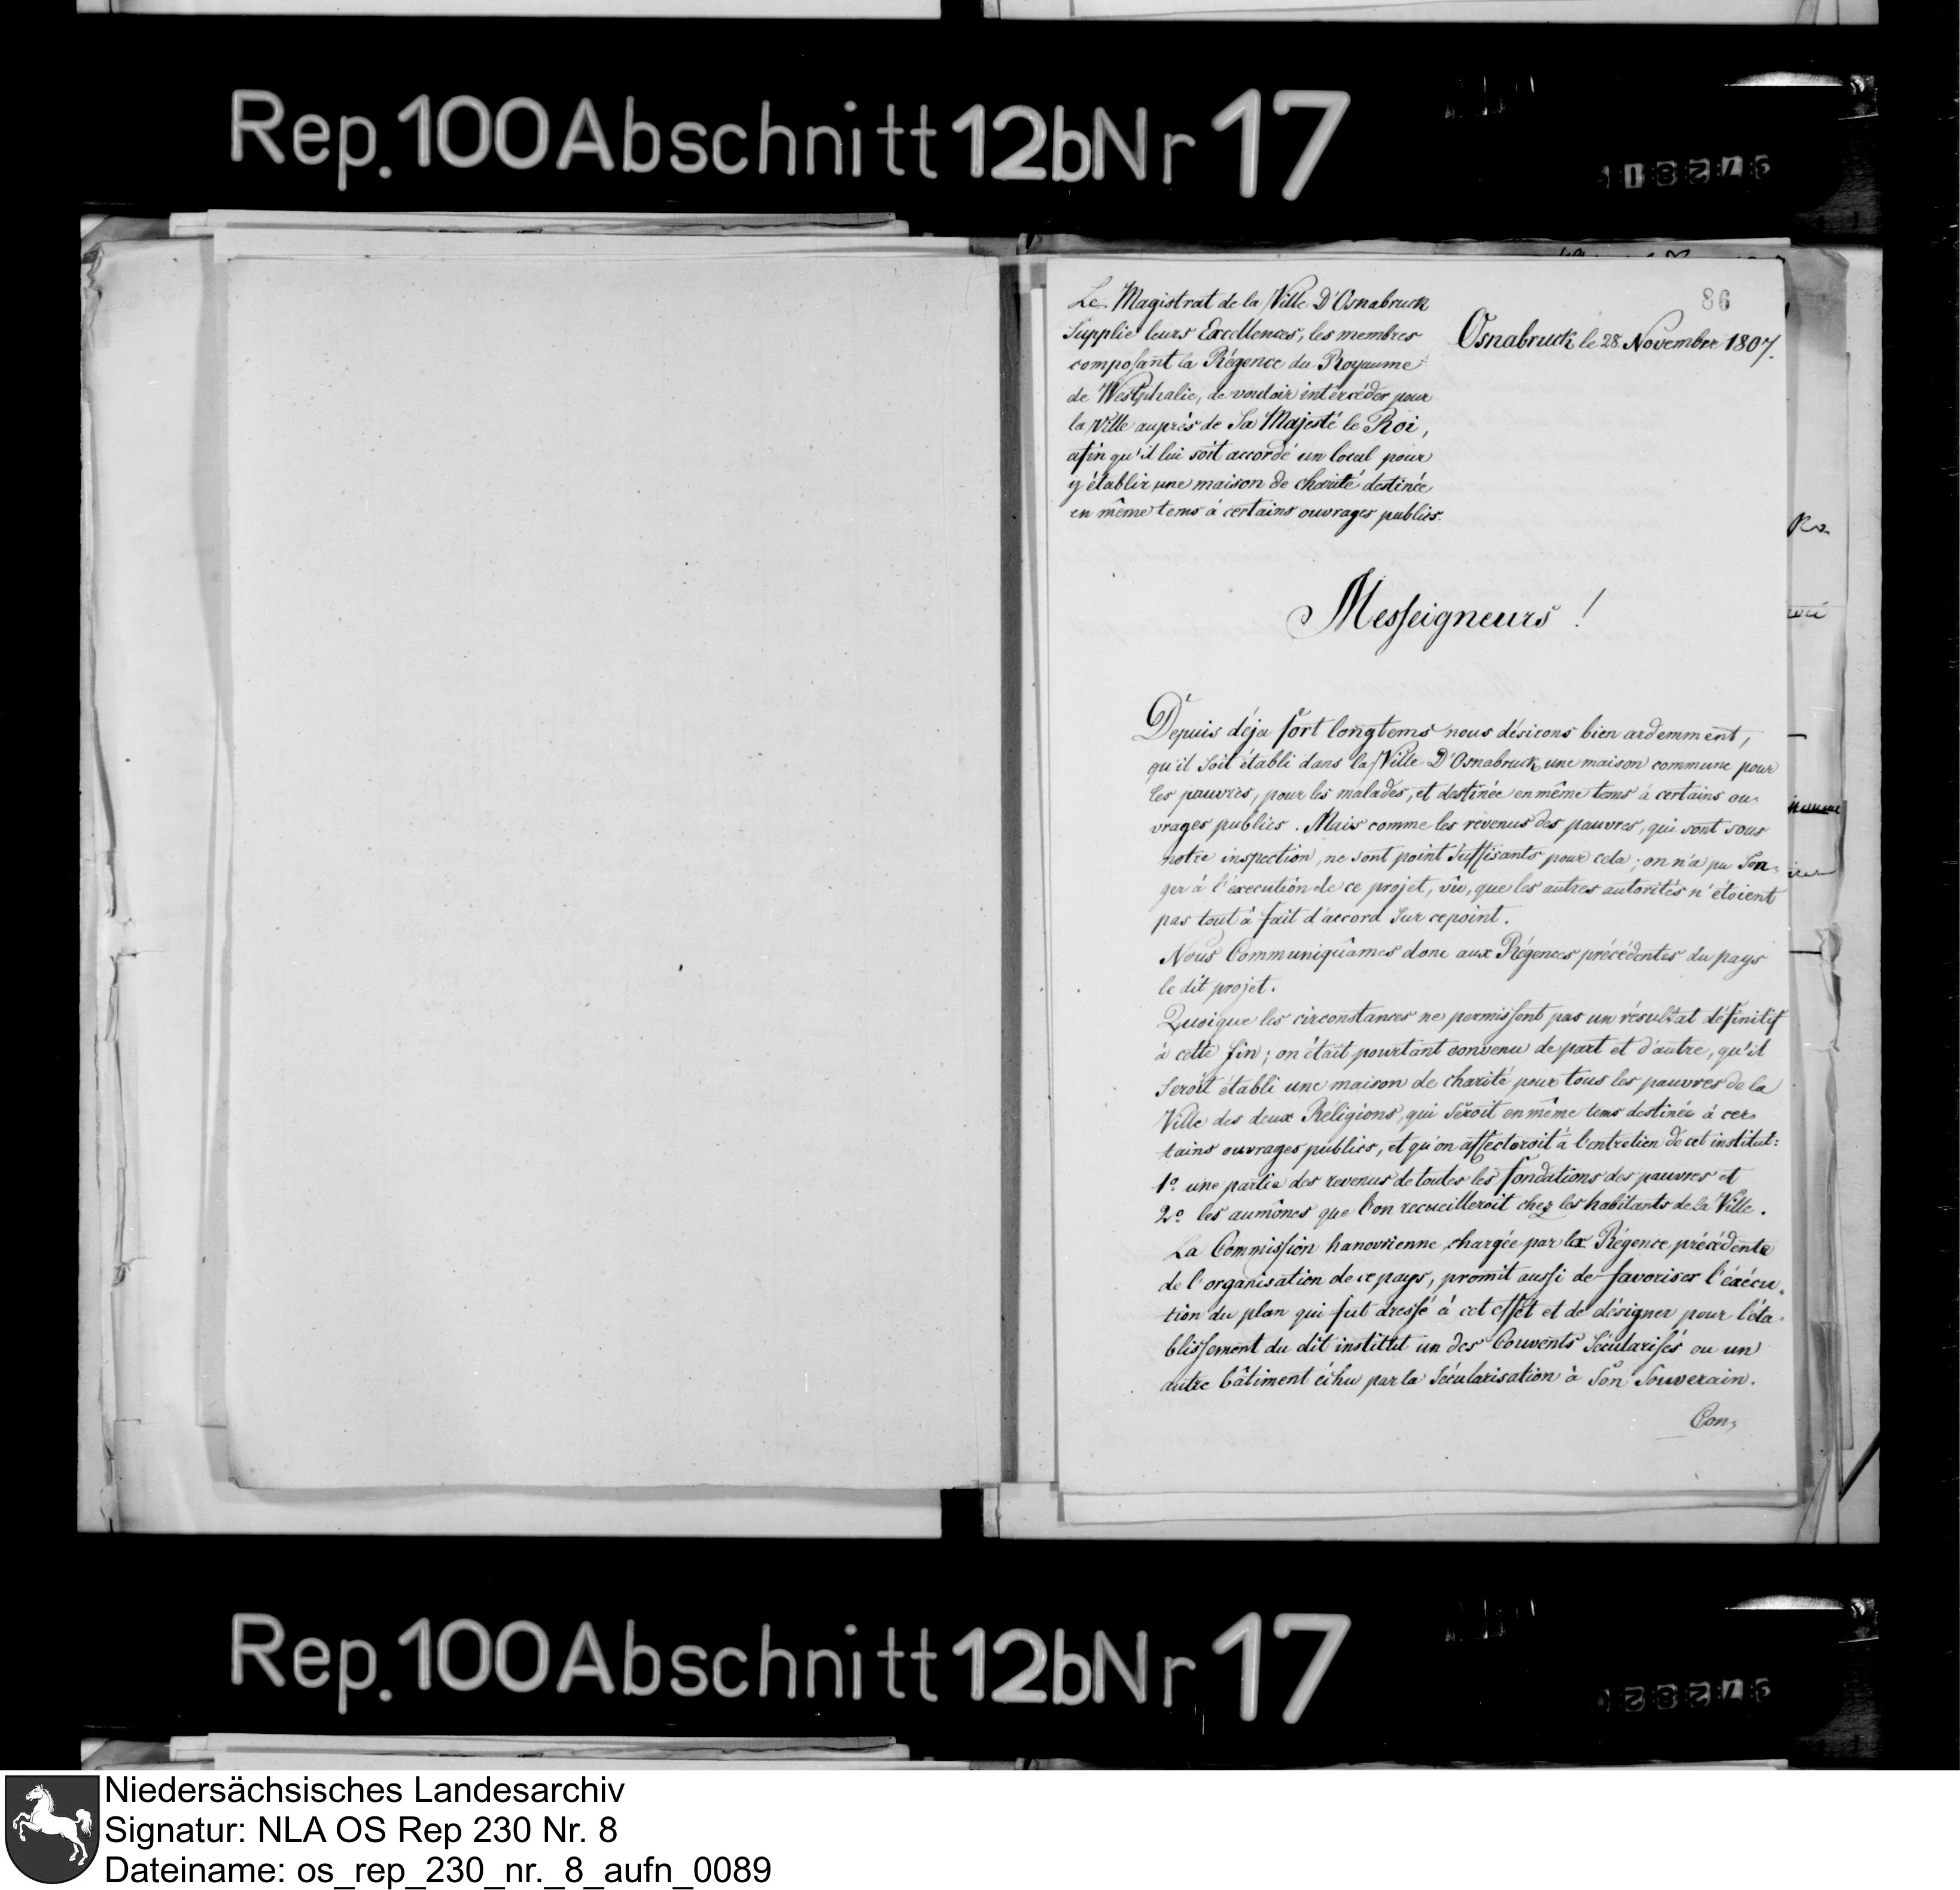 Rep. 100 Abschnitt 12b Nr 17
86
Le Magistrat de la Ville D'Osnabruck
Supplie leurs Excellences, les membres
composant la Régence du Royaume
de Westphalie, de vouloir intercéder pour
la Ville auprès de Sa Majesté le Roi,
afin qu'il lui soit accordé un local pour
y établir une maison de charité destinée
en même tems à certains ouvrages publics.
Osnabruck le 28. Novembre 1807.
Messeigneurs !
Depuis déja fort longtems nous désirons bien ardemment,
qu'il soit établi dans la Ville D'Osnabruck une maison commune pour
les pauvres, pour les malades, et destinée en même tems à certains ou-
vrages publics. Mais comme les revenus des pauvres, qui sont sous
notre inspection, ne sont point suffisants pour cela; on n'a pu son-
ger à l'éxecution de ce projet, vû, que les autres autorités n'étoient
pas tout à fait d'accord sur ce point.
Nous Communiquâmes donc aux Régences précédentes du pays
le dit projet.
Quoique les circonstances ne permissent pas un résultat définitif
à cette fin; on était pourtant convenu de part et d'autre, qu'il
seroit établi une maison de charité pour tous les pauvres de la
Ville des deux Réligions, qui seroit en même tems destinée à cer-
tains ouvrages publics, et qu'on affecteroit à l'entretien de cet institut:
1º. une partie des revenus de toutes les fondations des pauvres et
2º. les aumônes que l'on recueilleroit chez les habitants de la Ville.
La Commission hanovrienne, chargée par la Régence précédente
de l'organisation de ce pays, promit aussi de favoriser l'éxécu-
tion du plan qui fut dressé à cet effet et de désigner pour l'éta-
blissement du dit institut un des Couvents Sécularisés ou un
autre bâtiment échu par la Sécularisation à Son Souverain.
Con-
Rep. 100 Abschnitt 12b Nr 17
Niedersächsisches Landesarchiv
Signatur: NLA OS Rep 230 Nr. 8
Dateiname: os_rep_230_nr._8_aufn_0089